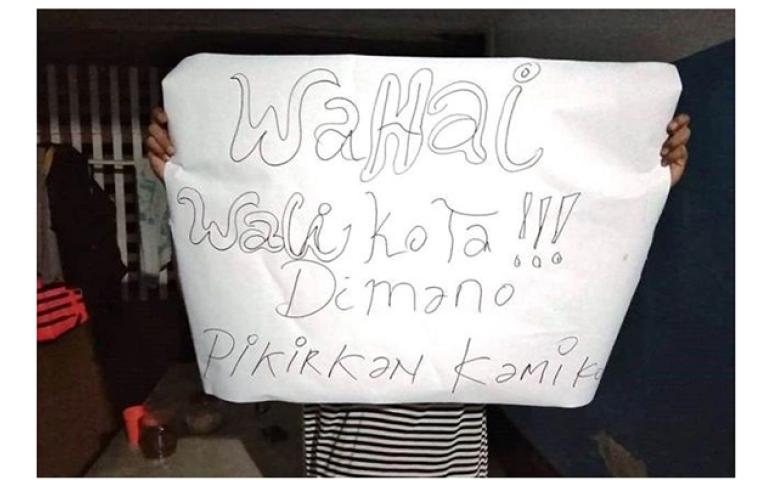 WaHai
Wali Kota !!!
Dimano
PiKiRKAN KAMi